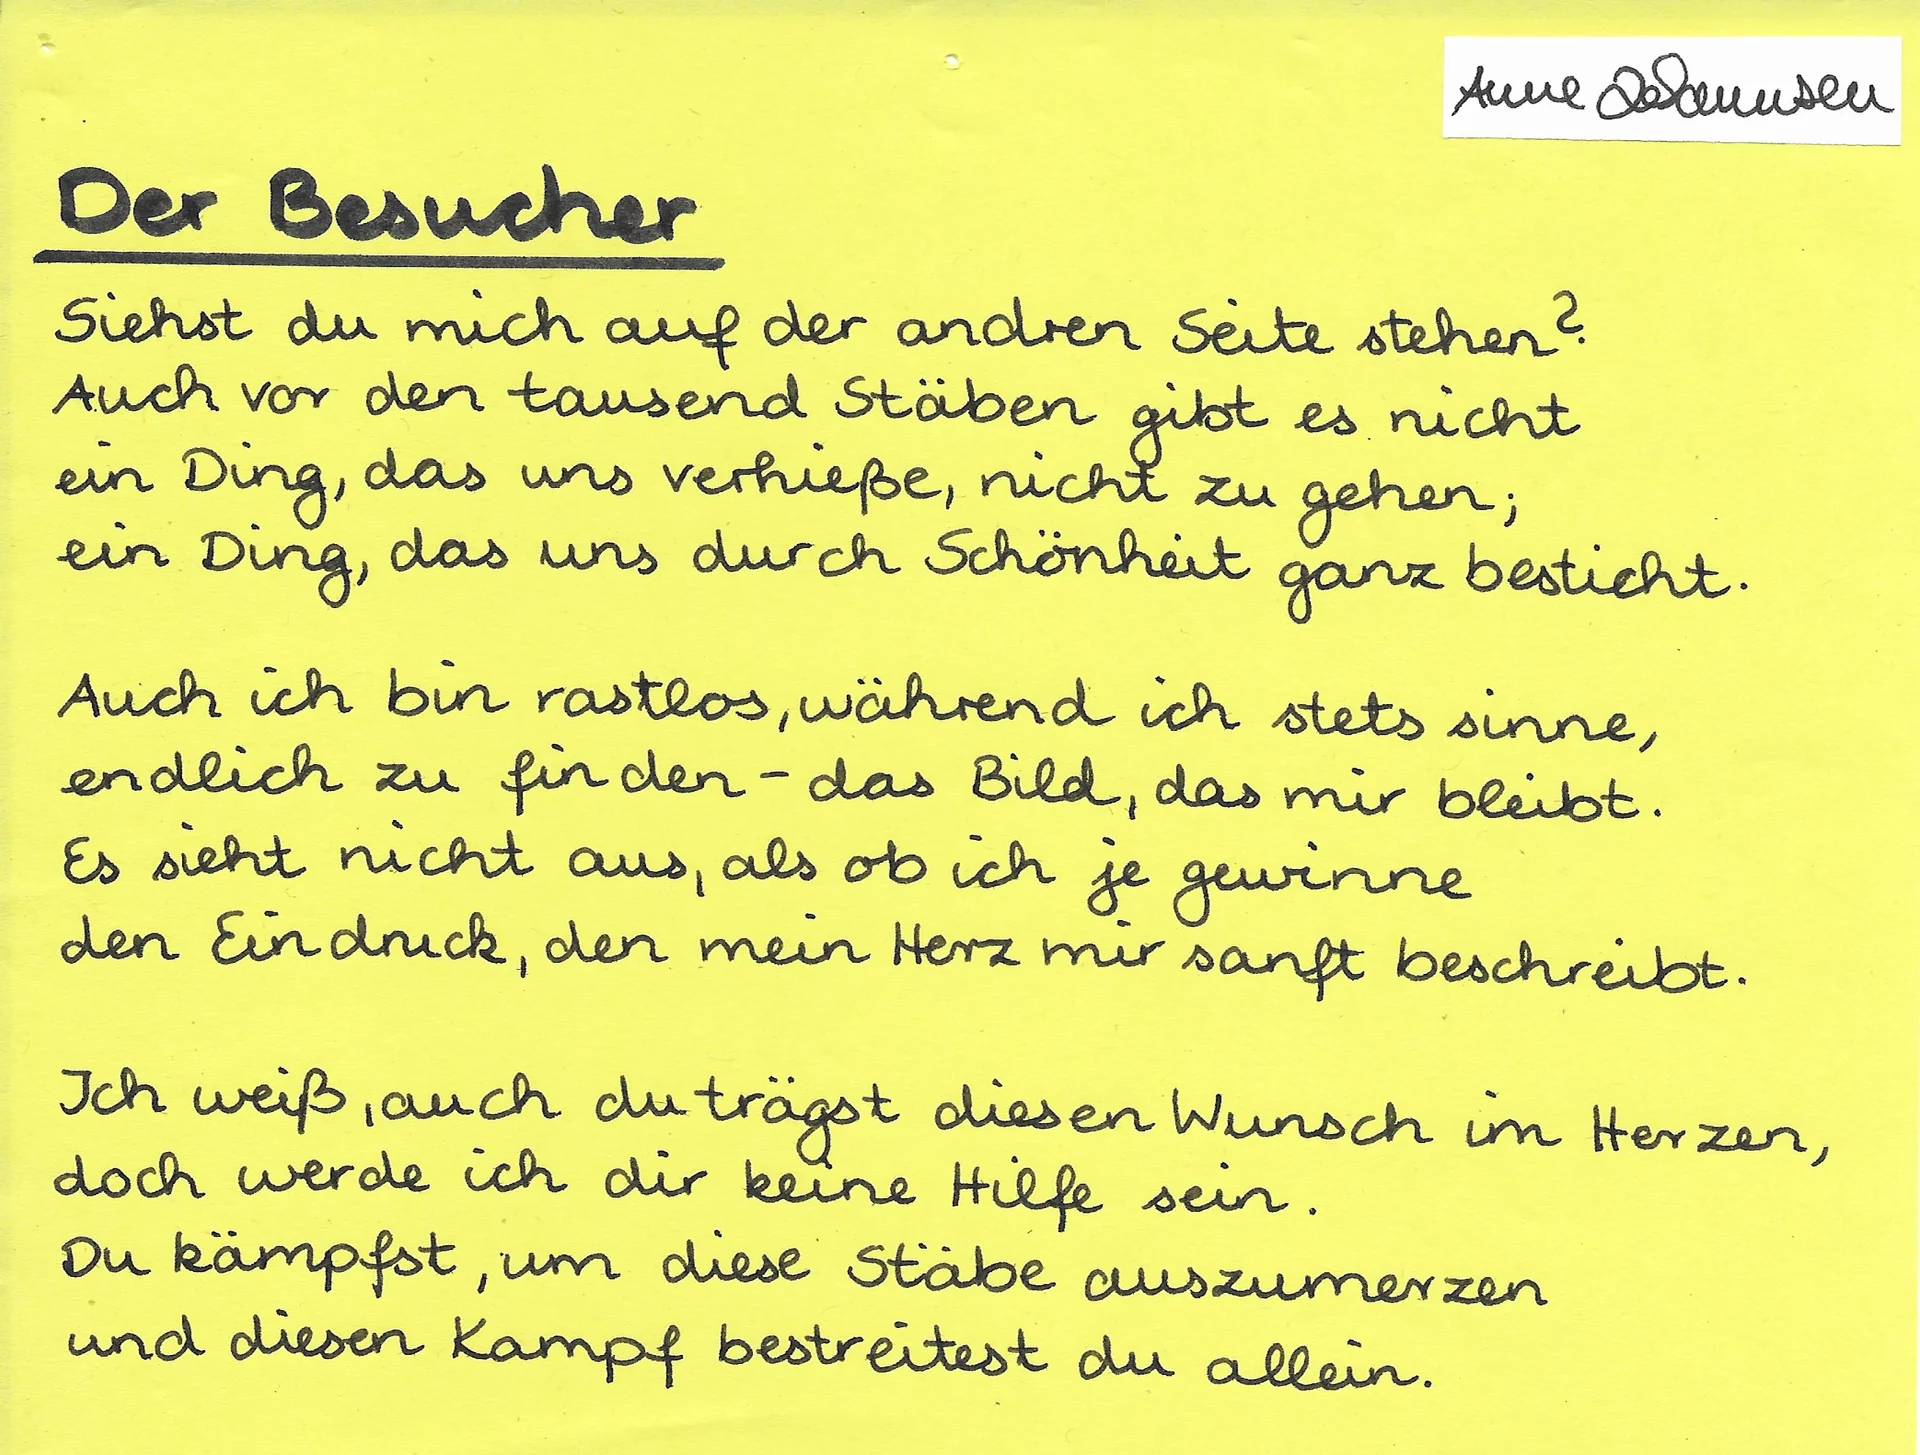 Anne Johannsen
Der Besucher
Siehst du mich auf der andren Seite stehen?
Auch vor den tausend Stäben gibt es nicht
ein Ding, das uns verhieße, nicht zu gehen;
ein Ding, das uns durch Schönheit ganz besticht.
Auch ich bin rastlos, während ich stets sinne,
endlich zu finden - das Bild, das mir bleibt.
Es sieht nicht aus, als ob ich je gewinne
den Eindruck, den mein Herz mir sanft beschreibt.
Ich weiß, auch du trägst diesen Wunsch im Herzen,
doch werde ich dir keine Hilfe sein.
Du kämpfst, um diese Stäbe auszumerzen
und diesen Kampf bestreitest du allein.